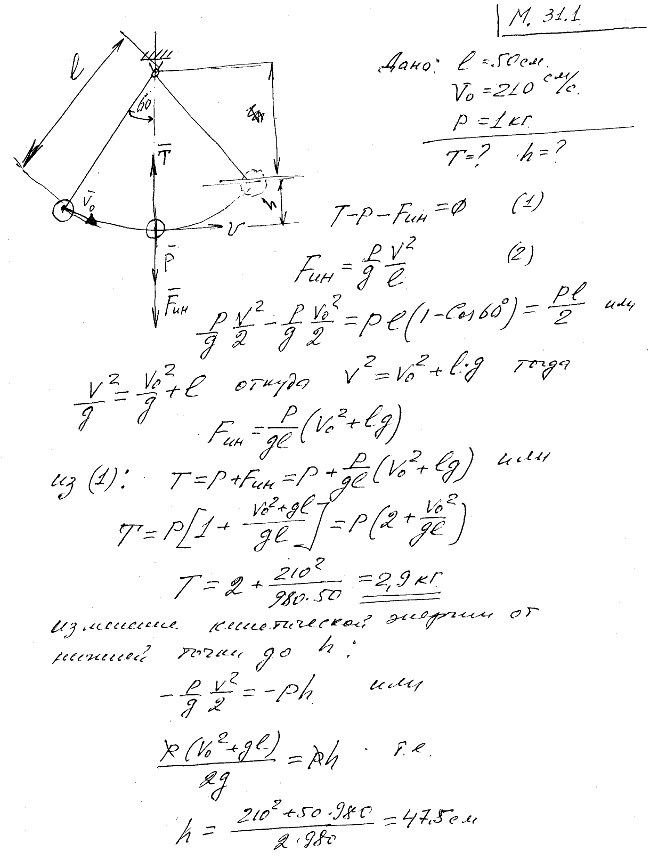 М. 31.1
Дано: l = 50 см.
V₀ = 210 см/с.
P = 1 кг
T = ? h = ?
l
60
T̅
h
V̅₀
V
P̅
F̅ин
T - P - Fин = 0 (1)
Fин = P/g V²/l (2)
P/g V²/2 - P/g V₀²/2 = Pl(1 - Cos60°) = Pl/2 или
V²/g = V₀²/g + l откуда V² = V₀² + l·g тогда
Fин = P/gl (V₀² + lg)
из (1): T = P + Fин = P + P/gl (V₀² + lg) или
T = P[1 + V₀² + gl/gl] = P(2 + V₀²/gl)
T = 2 + 210²/980·50 = 2,9 кг
изменение кинетической энергии от
нижней точки до h:
- P/g V²/2 = -Ph или
P(V₀² + gl)/2g = Ph т.е.
h = 210² + 50·980/2·980 = 47.5 см